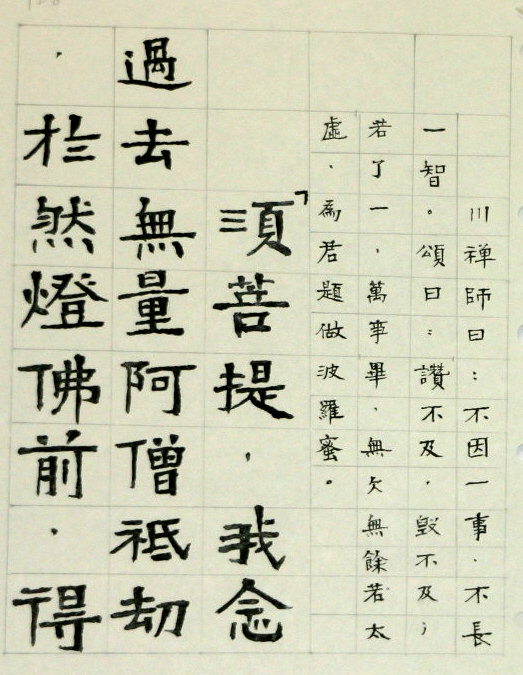 川禅師曰：不因一事．不長
一智。頌曰：讚不及．毀不及；
若了一．萬事畢．無欠無餘若太
虛．為君題做波羅蜜。
「須菩提，我念
過去無量阿僧祇劫
．於然燈佛前．得